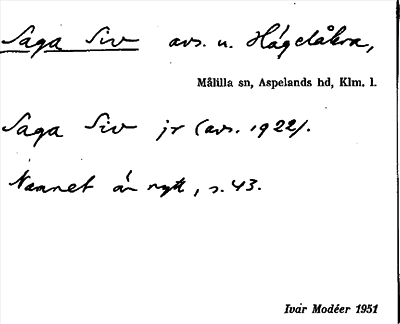 Saga Siv avs. u. Hägelåkra,
Målilla sn, Aspelands hd, Klm. l.
Saga Siv jr (avs. 1922).
Namnet är nytt, s. 43.
Ivar Modéer 1951